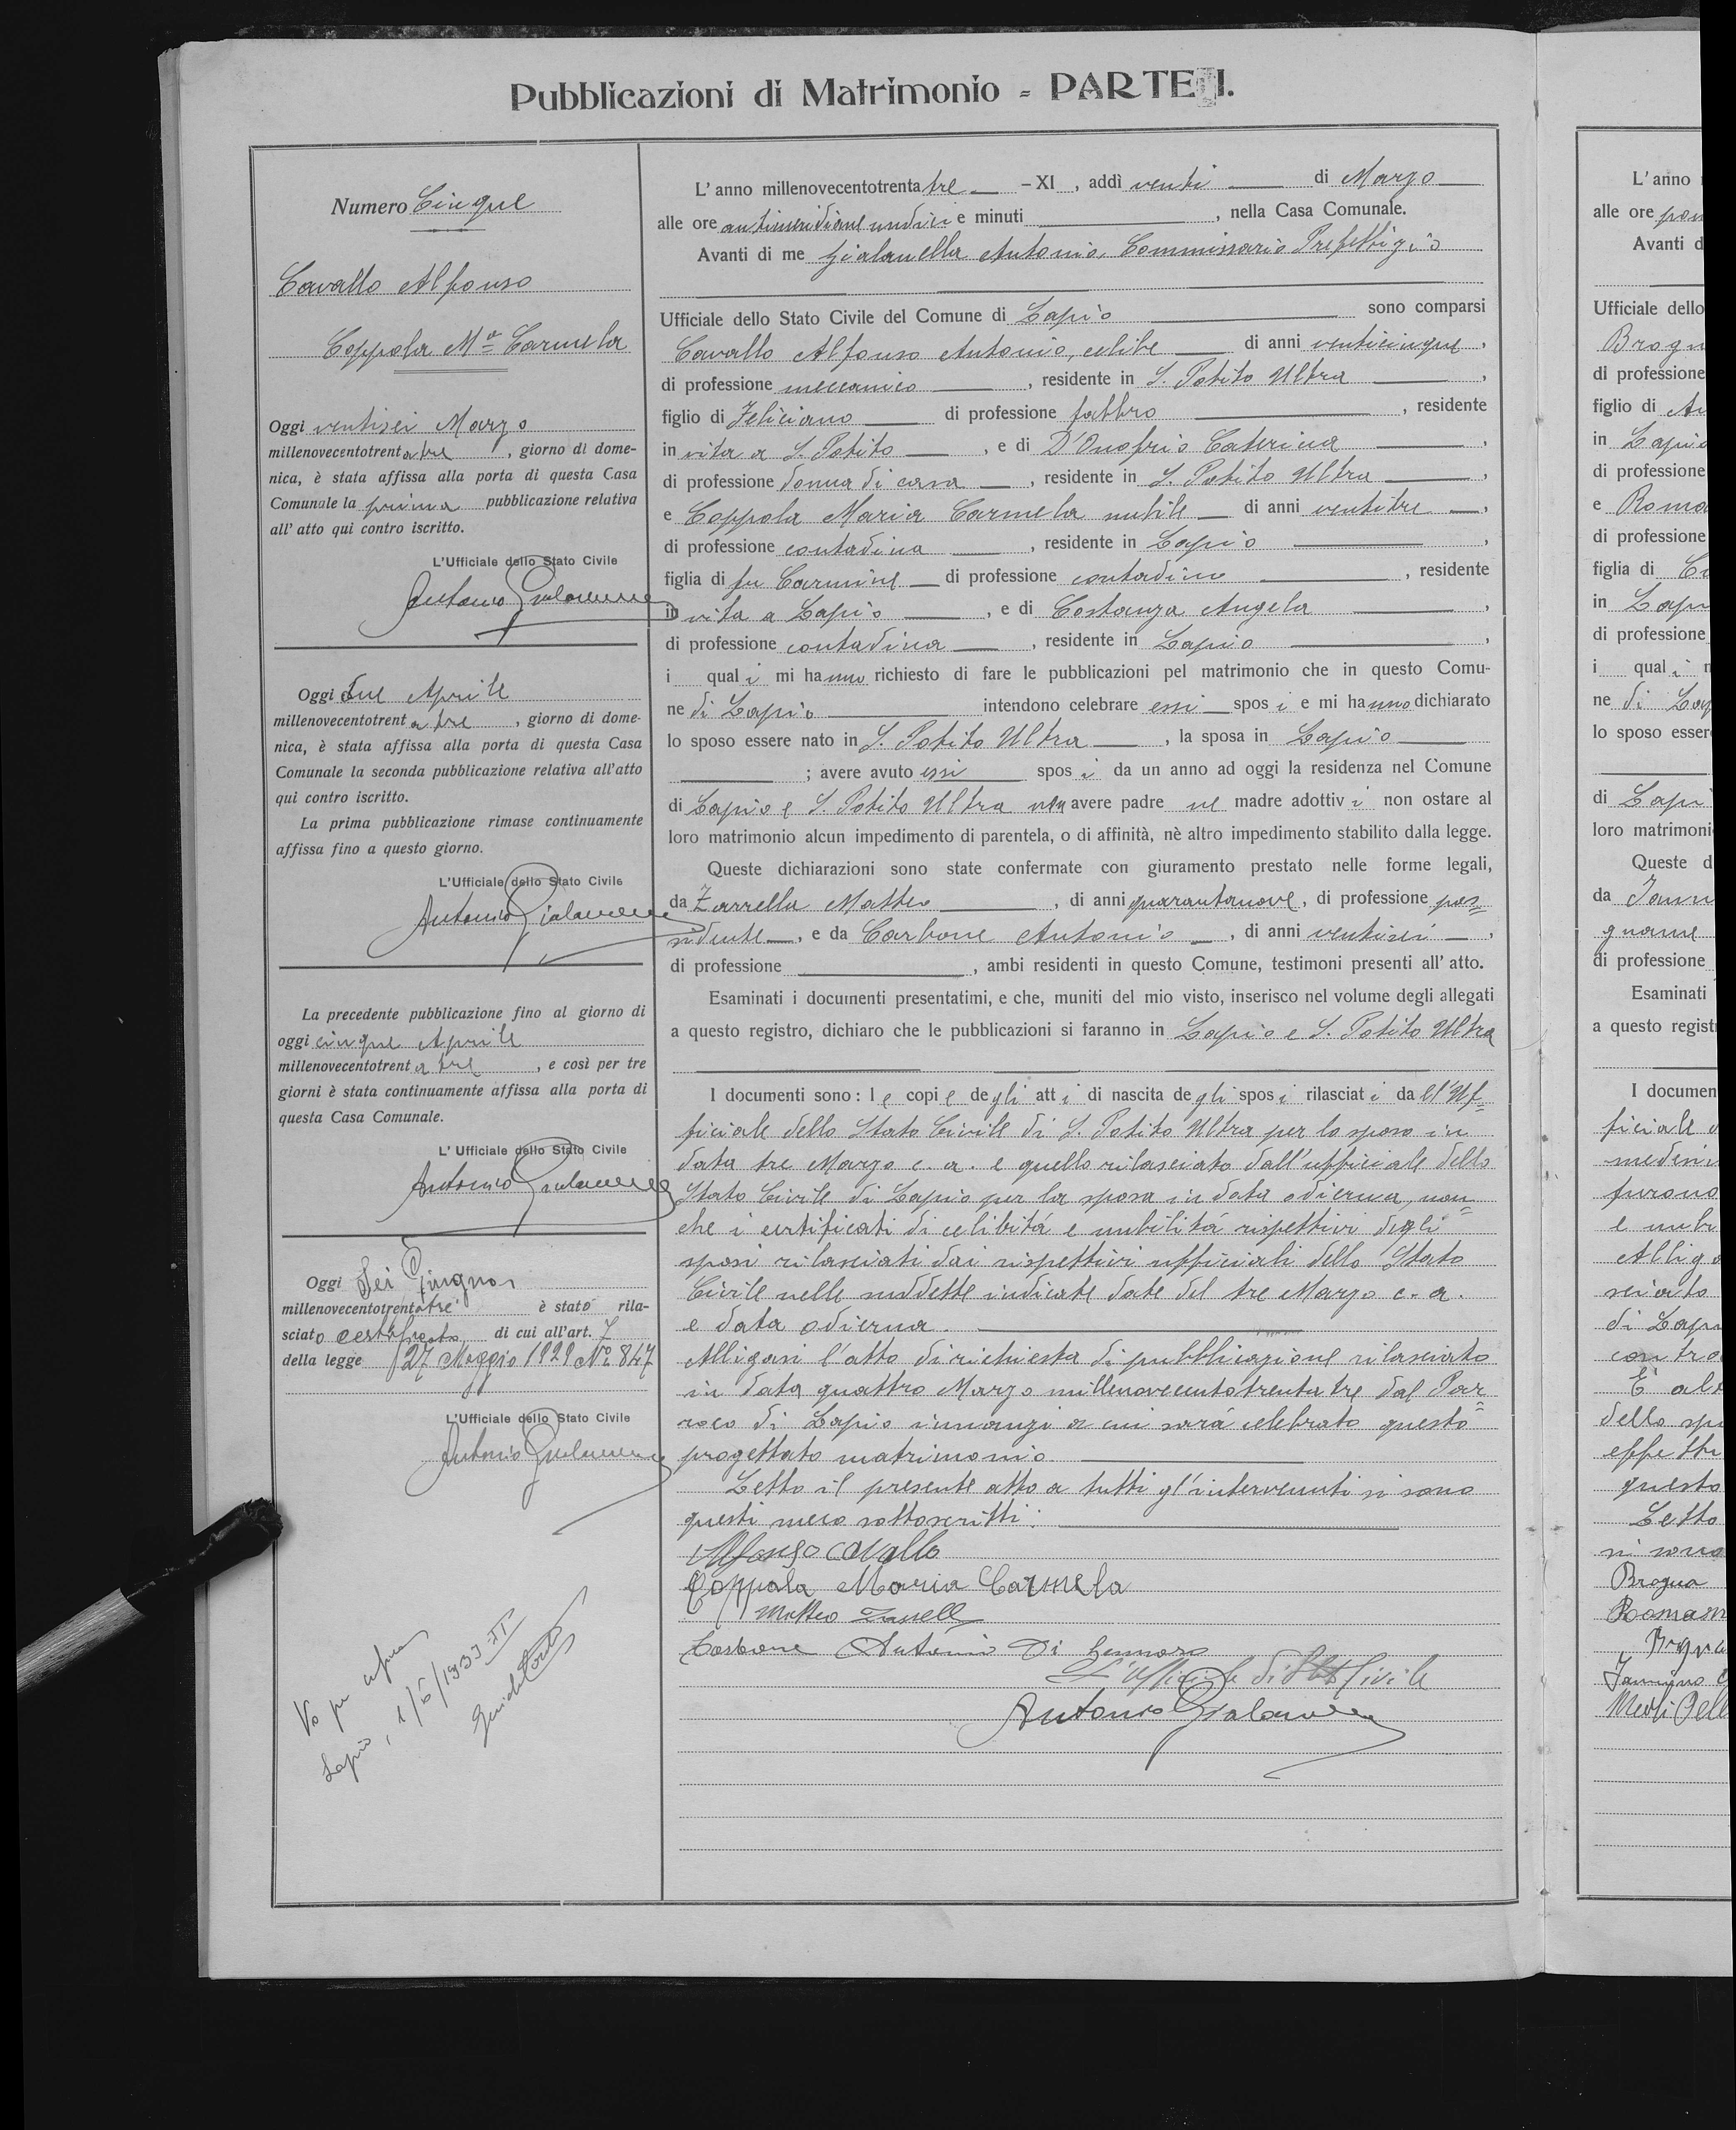 Pubblicazioni di Matrimonio = PARTE I.
Numero Cinque
Cavallo Alfonso
Coppola Mª Carmela
Oggi ventisei Marzo
millenovecentotrentatre, giorno di dome-
nica, è stata affissa alla porta di questa Casa
Comunale la prima pubblicazione relativa
all' atto qui contro iscritto.
L'Ufficiale dello Stato Civile
Antonio Gialanella
Oggi due Aprile
millenovecentotrentatre, giorno di dome-
nica, è stata affissa alla porta di questa Casa
Comunale la seconda pubblicazione relativa all'atto
qui contro iscritto.
La prima pubblicazione rimase continuamente
affissa fino a questo giorno.
L'Ufficiale dello Stato Civile
Antonio Gialanella
La precedente pubblicazione fino al giorno di
oggi cinque Aprile
millenovecentotrentatre, e così per tre
giorni è stata continuamente affissa alla porta di
questa Casa Comunale.
L' Ufficiale dello Stato Civile
Antonio Gialanella
Oggi Sei Giugno
millenovecentotrentatre è stato rila-
sciato certificato di cui all'art. 7
della legge 27 Maggio 1929 No. 847
L'Ufficiale dello Stato Civile
Antonio Gialanella
Lapio, 1/5/1933 XI
L' anno millenovecentotrentatre - XI, addì venti di Marzo
alle ore antimeridiane undici e minuti, nella Casa Comunale.
Avanti di me Gialanella Antonio, Commissario Prefettizio
Ufficiale dello Stato Civile del Comune di Lapio sono comparsi
Cavallo Alfonso Antonio, celibe di anni venticinque,
di professione meccanico, residente in S. Potito Ultra,
figlio di Feliciano di professione fabbro, residente
in vita a S. Potito, e di D'Onofrio Caterina,
di professione donna di casa, residente in S. Potito Ultra,
e Coppola Maria Carmela nubile di anni ventitre,
di professione contadina, residente in Lapio,
figlia di fu Carmine di professione contadino, residente
in vita a Lapio, e di Costanza Angela,
di professione contadina, residente in Lapio,
i quali mi hanno richiesto di fare le pubblicazioni pel matrimonio che in questo Comu-
ne di Lapio intendono celebrare essi sposi e mi hanno dichiarato
lo sposo essere nato in S. Potito Ultra, la sposa in Lapio
; avere avuto essi sposi da un anno ad oggi la residenza nel Comune
di Lapio e S. Potito Ultra non avere padre ne madre adottivi non ostare al
loro matrimonio alcun impedimento di parentela, o di affinità, nè altro impedimento stabilito dalla legge.
Queste dichiarazioni sono state confermate con giuramento prestato nelle forme legali,
da Zarrella Matteo, di anni quarantanove, di professione pos=
sidente, e da Carbone Antonio, di anni ventisei,
di professione, ambi residenti in questo Comune, testimoni presenti all' atto.
Esaminati i documenti presentatimi, e che, muniti del mio visto, inserisco nel volume degli allegati
a questo registro, dichiaro che le pubblicazioni si faranno in Lapio e S. Potito Ultra
I documenti sono: le copie degli atti di nascita degli sposi rilasciati dall'Uf=
ficiale dello Stato Civile di S. Potito Ultra per lo sposo in
data tre Marzo c. a. e quello rilasciato dall'ufficiale dello
Stato Civile di Lapio per la sposa in data odierna, non=
che i certificati di celibità e nubilità rispettivi degli
sposi rilasciati dai rispettivi ufficiali dello Stato
Civile nelle suddette indicate date del tre Marzo c. a.
e data odierna.
Alligasi l'atto di richiesta di pubblicazione rilasciato
in data quattro Marzo millenovecentotrentatre dal Par=
roco di Lapio innanzi a cui sarà celebrato questo
progettato matrimonio.
Letto il presente atto a tutti gl'intervenuti si sono
questi meco sottoscritti:
Alfonso Cavallo
Coppola Maria Carmela
Matteo Zarrella
Carbone Antonio di Gennaro
L'Ufficiale di Stato Civile
Antonio Gialanella
L' anno
alle ore
Avanti d
Ufficiale dello
Brogn
di professione
figlio di
in Lapio
di professione
e Roma
di professione
figlia di
in Lapi
di professione
i quali
ne di Lap
lo sposo esser
di Lapi
loro matrimoni
Queste d
da
di professione
Esaminati
a questo regist
I documen
ficiale
furono
e nub
Allig
sciato
di Lap
contro
dello spo
questo
Letto
si sono
Brogna
Roman